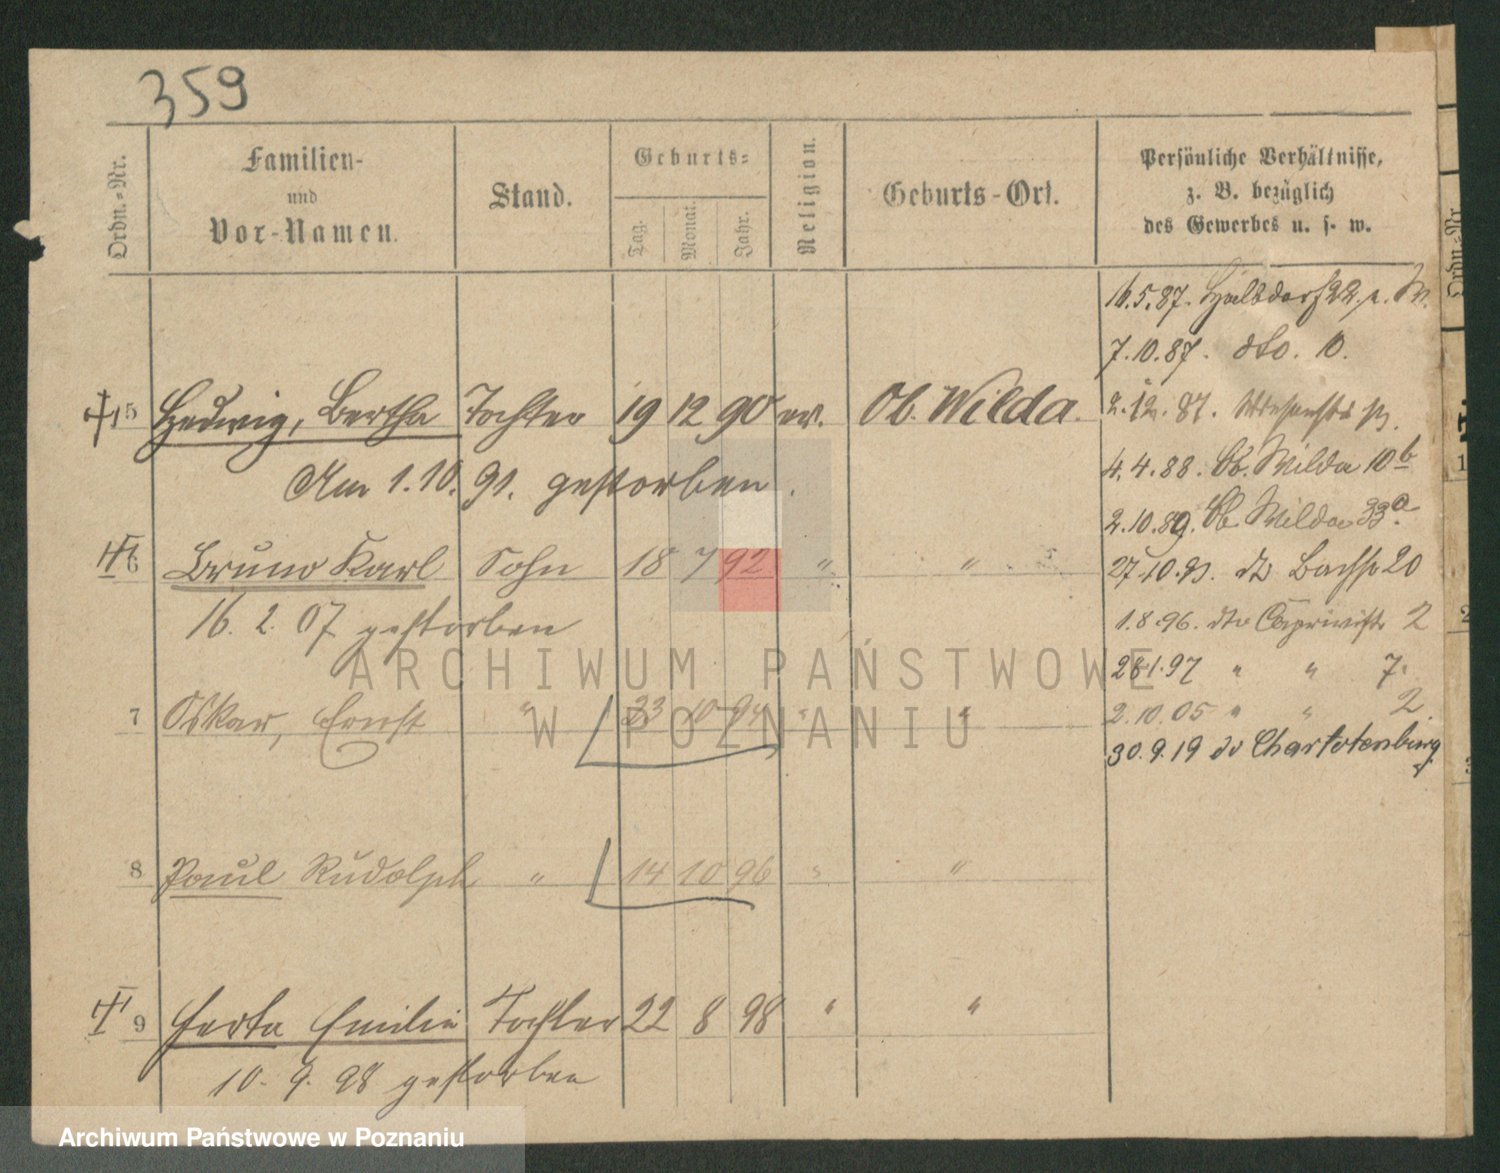 359
Ordn.-Nr.
Familien-
und
Vor-Namen.
Stand.
Geburts-
Tag.
Monat.
Jahr.
Religion.
Geburts-Ort.
Persönliche Verhältnisse,
z. B. bezüglich
des Gewerbes u. s. w.
16.5.87. Halbdorfst 22. p. W.
7.10.87. dto. 10.
5 Hedwig, Bertha Tochter 19 12 90 ev. Ob. Wilda.
2.12.87.
Am 1.10.91. gestorben.
4.4.88. Ob. Wilda 10b
2.10.89. Ob. Wilda 33a
6 Bruno Karl Sohn 18 7 92 " "
27.10.93. 20
16. 2. 07 gestorben
1.8.96. dto Caprivistr 2
28.1.97 " " 7.
7 Oskar, Ernst " 23 10 94 " "
2.10.05 " " 2.
30.9.19 Charlotenburg
8 Paul Rudolph " 14 10 96 " "
9 Herta Emilie Tochter 22 8 98 " "
10. 9. 98 gestorben
ARCHIWUM PAŃSTWOWE
W POZNANIU
Archiwum Państwowe w Poznaniu
Ordn.-Nr.
1
2
3